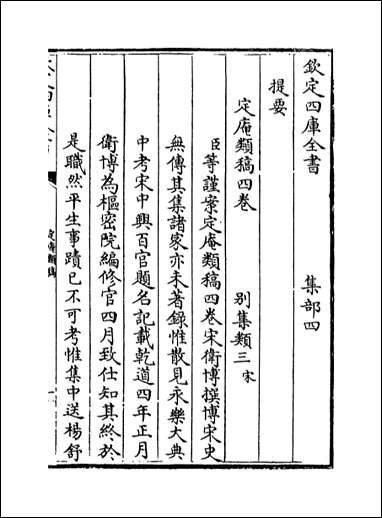 欽定四庫全書　　　集部四
提要
定庵類稿四卷　　　別集類三 宋
臣等謹案定庵類稿四卷宋衛博撰博宋史
無傳其集諸家亦未著錄惟散見永樂大典
中考宋中興百官題名記載乾道四年正月
衛博為樞密院編修官四月致仕知其終於
是職然平生事蹟已不可考惟集中送楊舒
定庵類稿